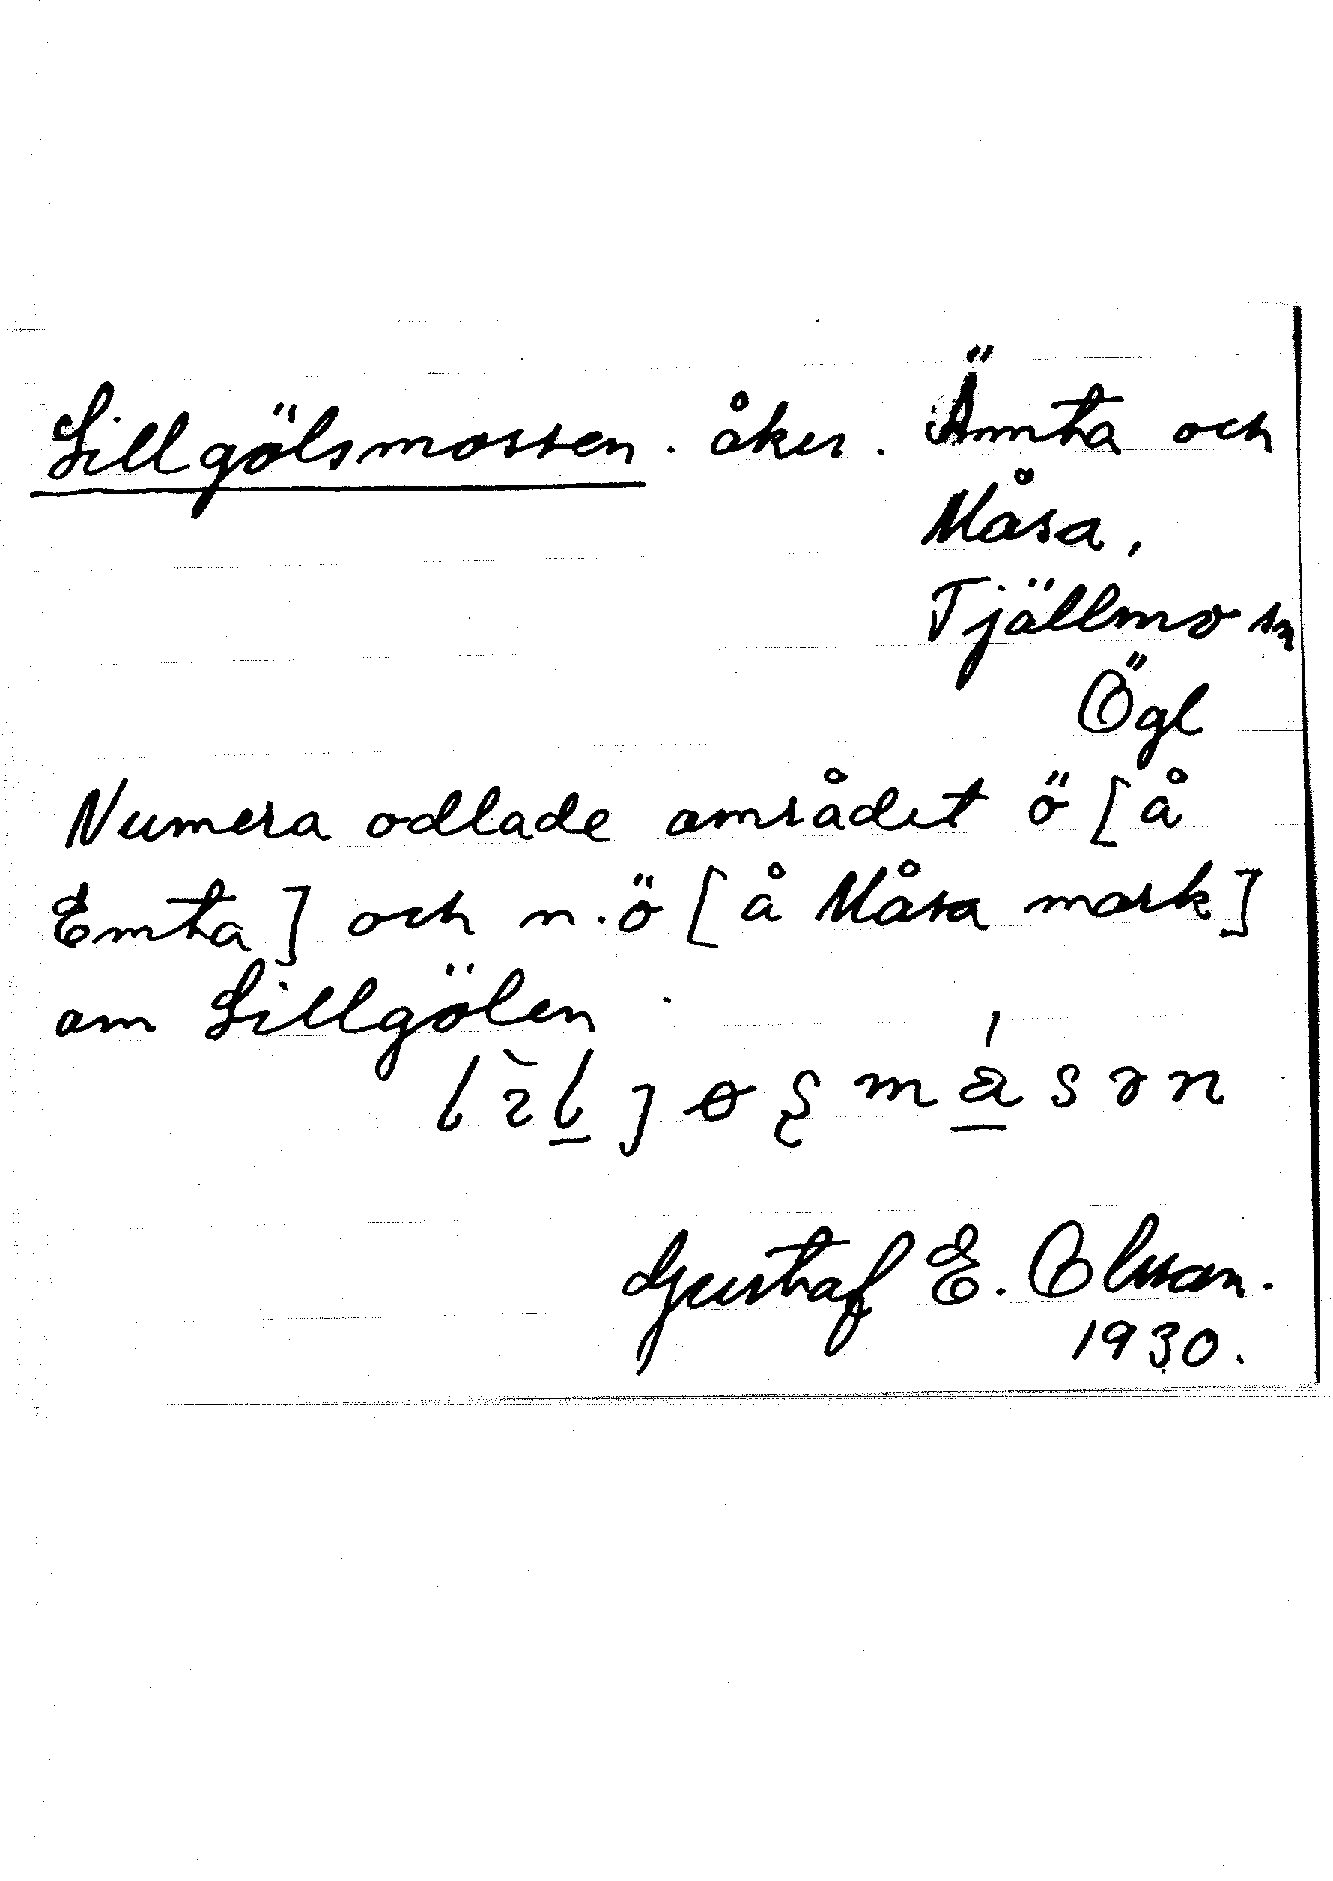 Lillgölsmossen. åker. Ämta och
Måsa,
Tjällmo sn
Ögl
Numera odlade området ö [å
Emta] och n.ö [å Måsa mark]
om Lillgölen
Gustaf E. Olsson.
1930.